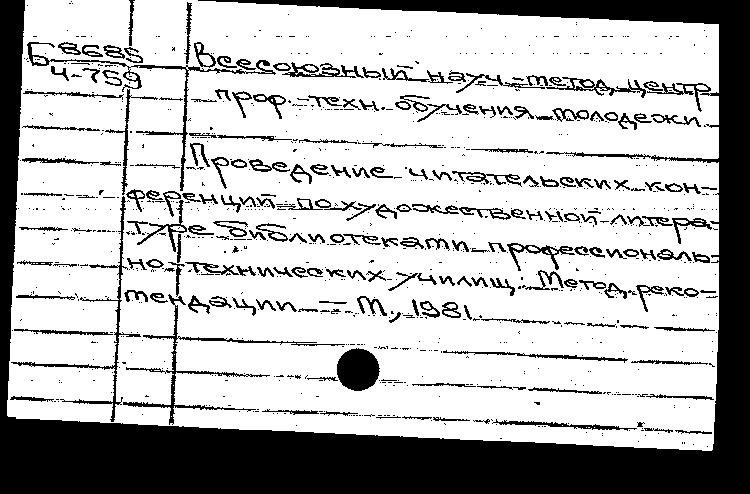 Б 8685
Ч-759
Всесоюзный науч.-метод. центр
проф.-техн. обучения молодежи.
Проведение читательских кон-
ференций по художественной литера-
туре библиотеками профессиональ-
но-технических училищ: Метод. реко-
мендации. — М., 1981.